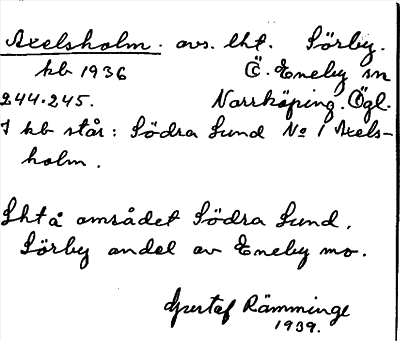 Axelsholm. avs. lht. Sörby.
kb 1936 Ö. Eneby sn
244.245. Norrköping. Ögl.
I kb står: Södra Sund No 1 Axels-
holm.
Lht å området Södra Sund,
Sörby andel av Eneby mo.
Gustaf Rämminge
1939.